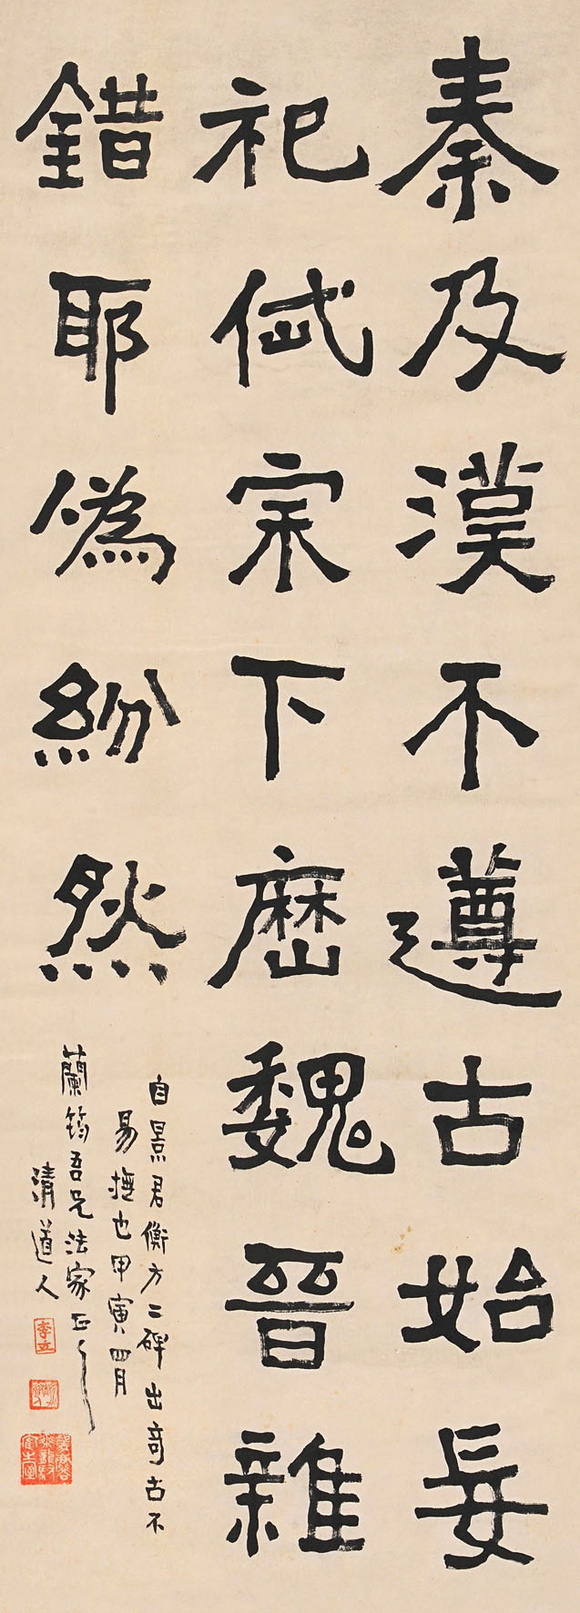 秦及漢不遵古始妄
祀岱宗下歷魏晉雜
錯耶僞紛然
自景君衡方二碑出奇古不
易撫也甲寅四月
蘭筠吾兄法家正之
清道人